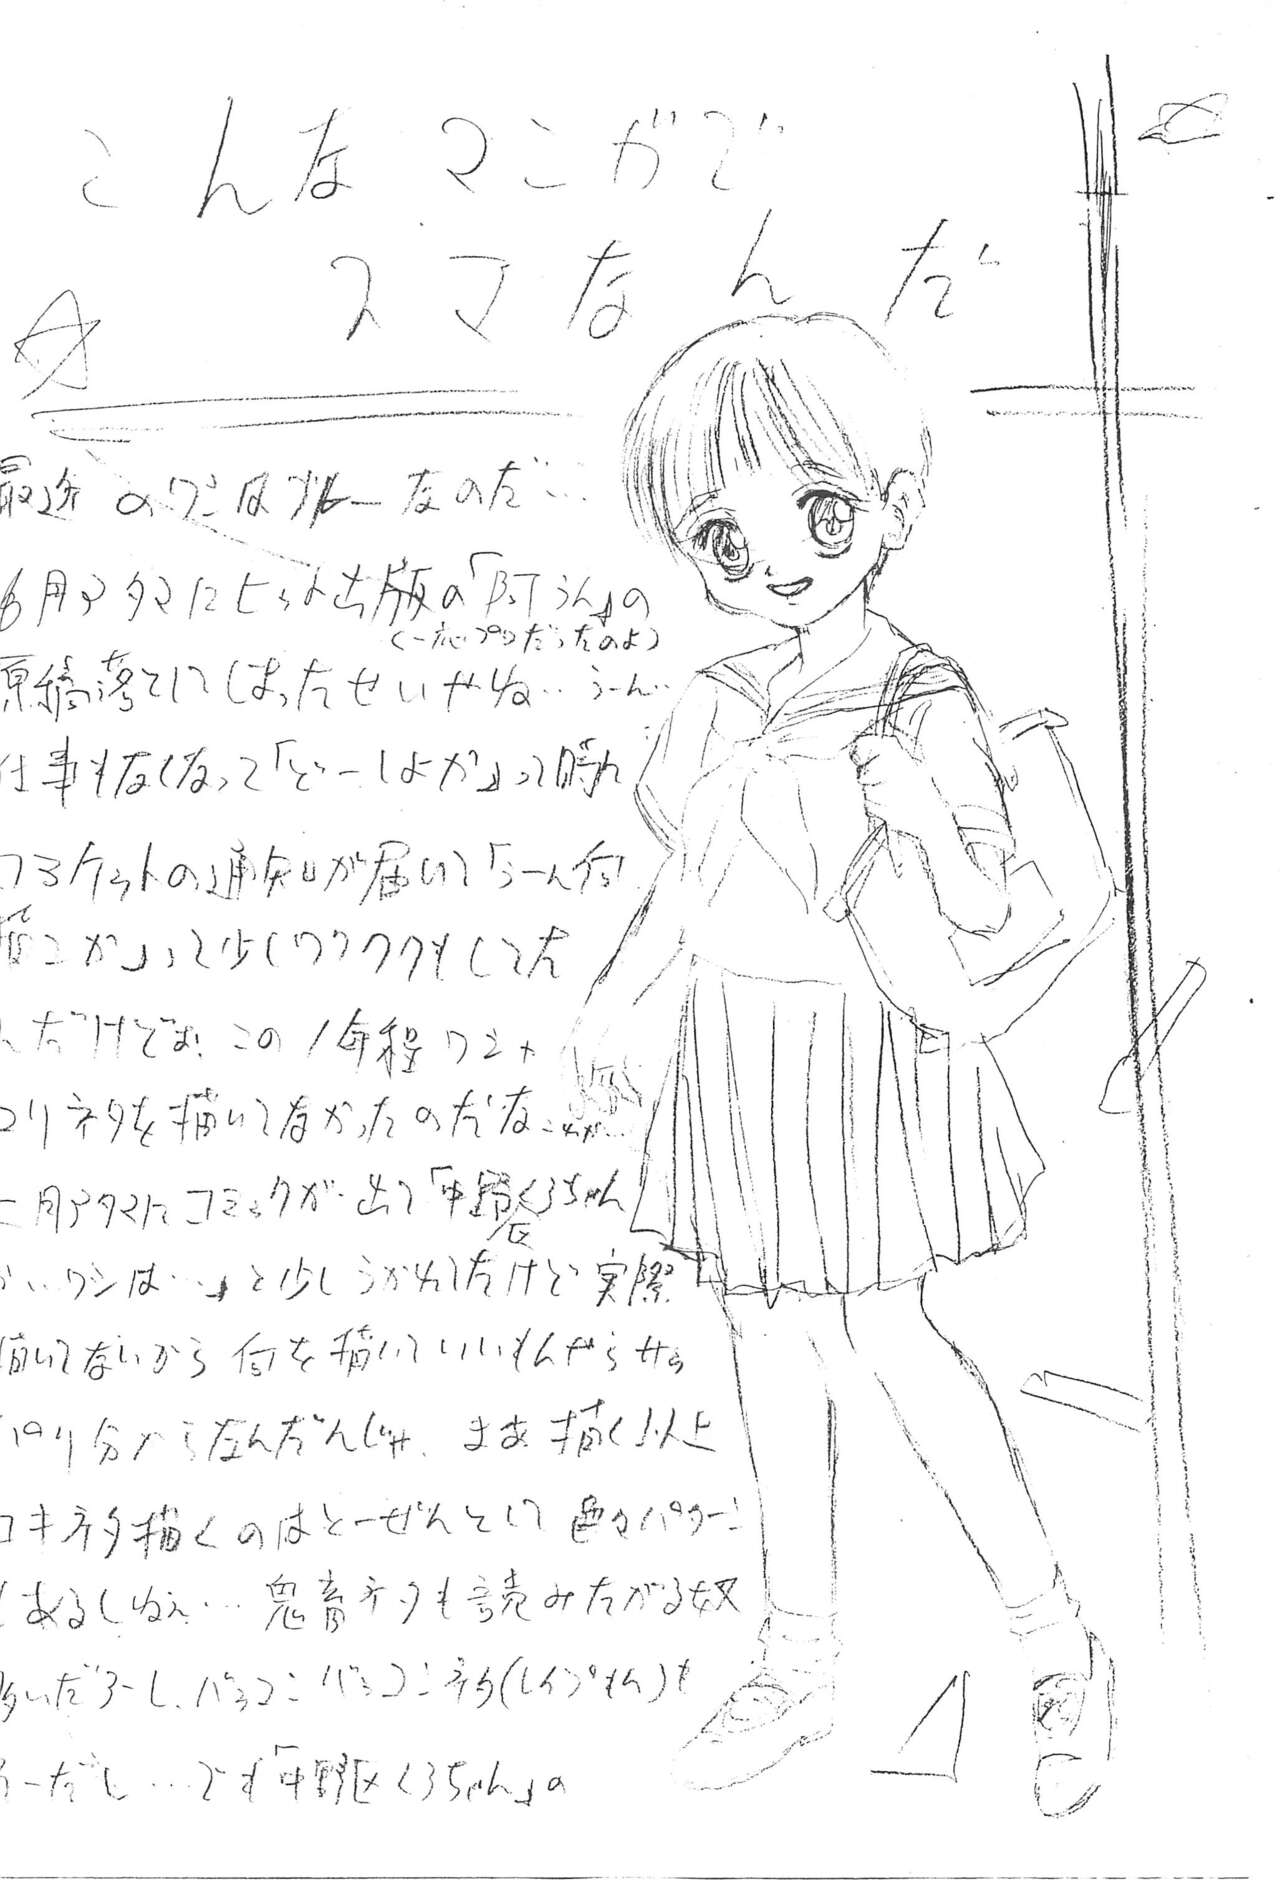 こんなマンガで
スマなんだ
最近のワシはブルーなのだ…
6月アタマにヒット出版の「阿うん」の
(一応プロだったのよ)
原稿落としてしまったせいやね…うーん…
仕事もなくなって「どーしよか」って時に
コミケットの通知が届いて「うーん何
描こか」って少しワクワクもしてた
んだけどね、この1年程ワシャ
ロリネタを描いてなかったのだな
二月アタマにコミックが出て「中野区くろちゃん
ワシは…」と少しうかれてたけど実際
描いてないから何を描いていいもんやら
分からなんだんじゃ、まあ描く以上
ネタ描くのはとーぜんとして色々パターン
もあるしねえ…鬼畜ネタも読みたがる奴
多いだろーし、バッコンバッコンネタ(レイプもん)も
そーだし…でも「中野区くろちゃん」の
1